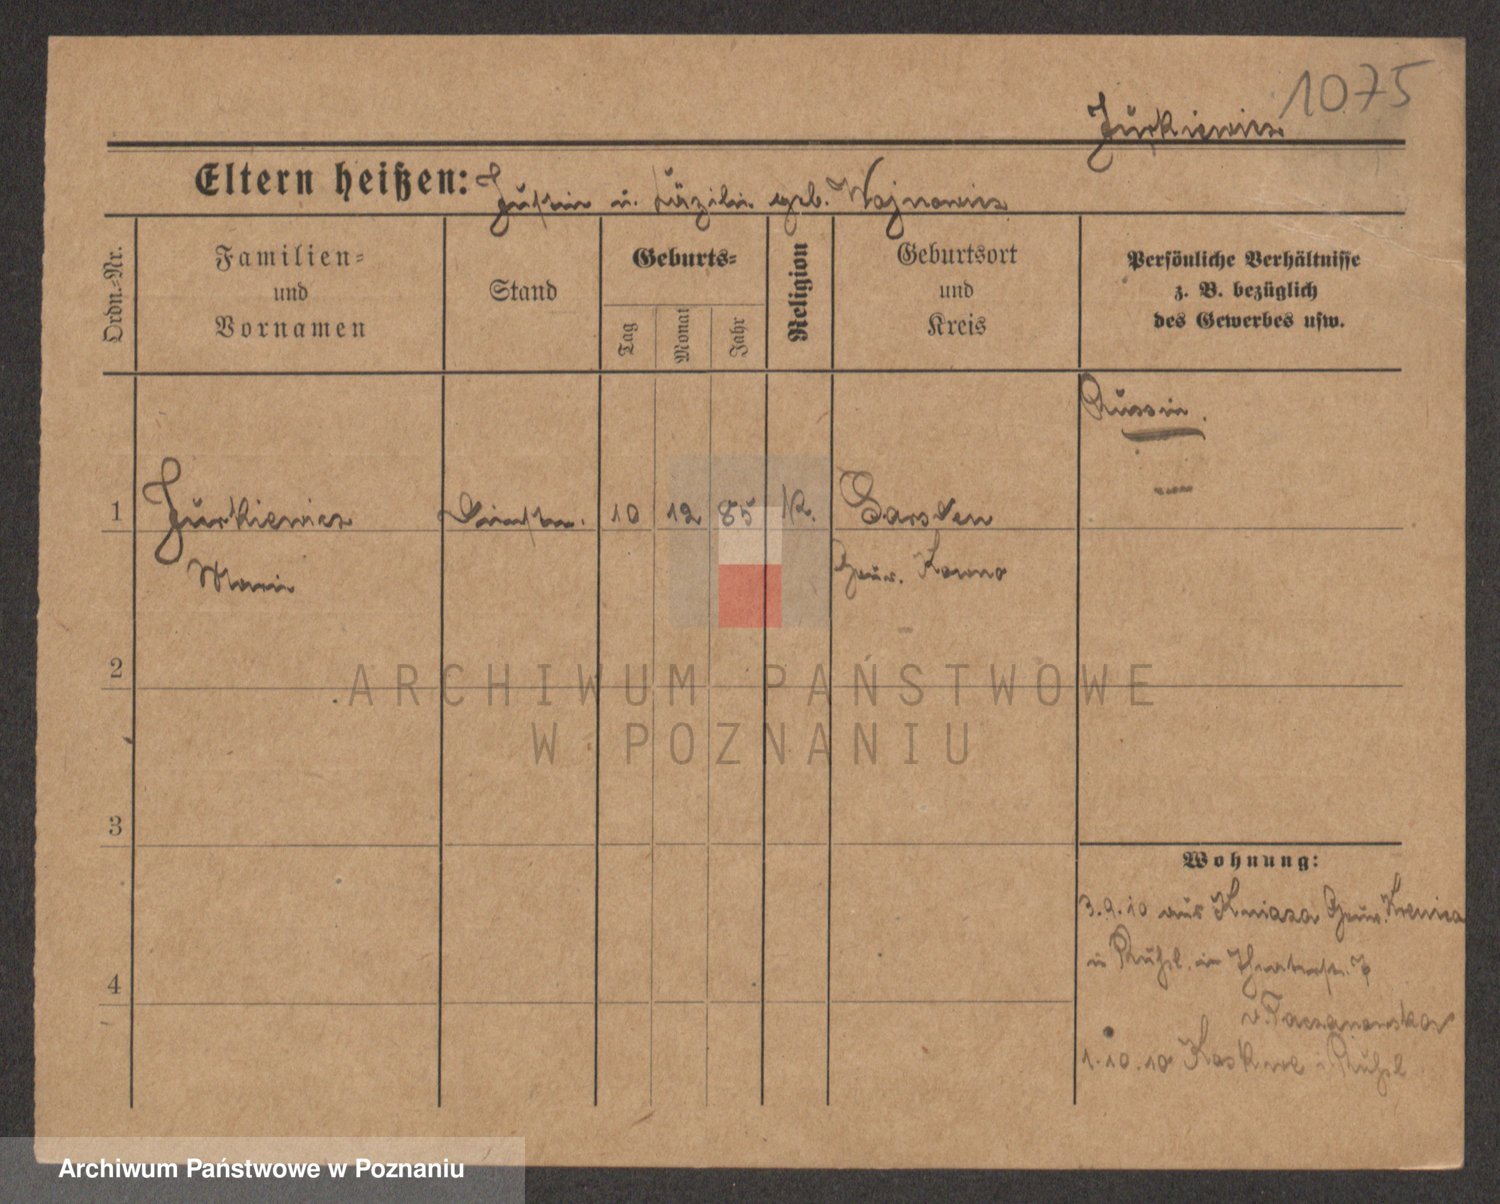 1075
Jurkiewicz
Eltern heißen: Justin u. Cäzilie geb. Wojnowicz
Ordn.-Nr.
Familien-
und
Vornamen
Stand
Geburts-
Tag
Monat
Jahr
Religion
Geburtsort
und
Kreis
Persönliche Verhältnisse
z. B. bezüglich
des Gewerbes usw.
Russin.
1
Jurkiewicz
10
12
85
K.
Gouv. Kowno
Marie
2
ARCHIWUM PAŃSTWOWE
W POZNANIU
3
Wohnung:
3.9.10 aus Gouv.
in Theaterstr. 7
v. Taczanowska
4
1.10.10
Archiwum Państwowe w Poznaniu